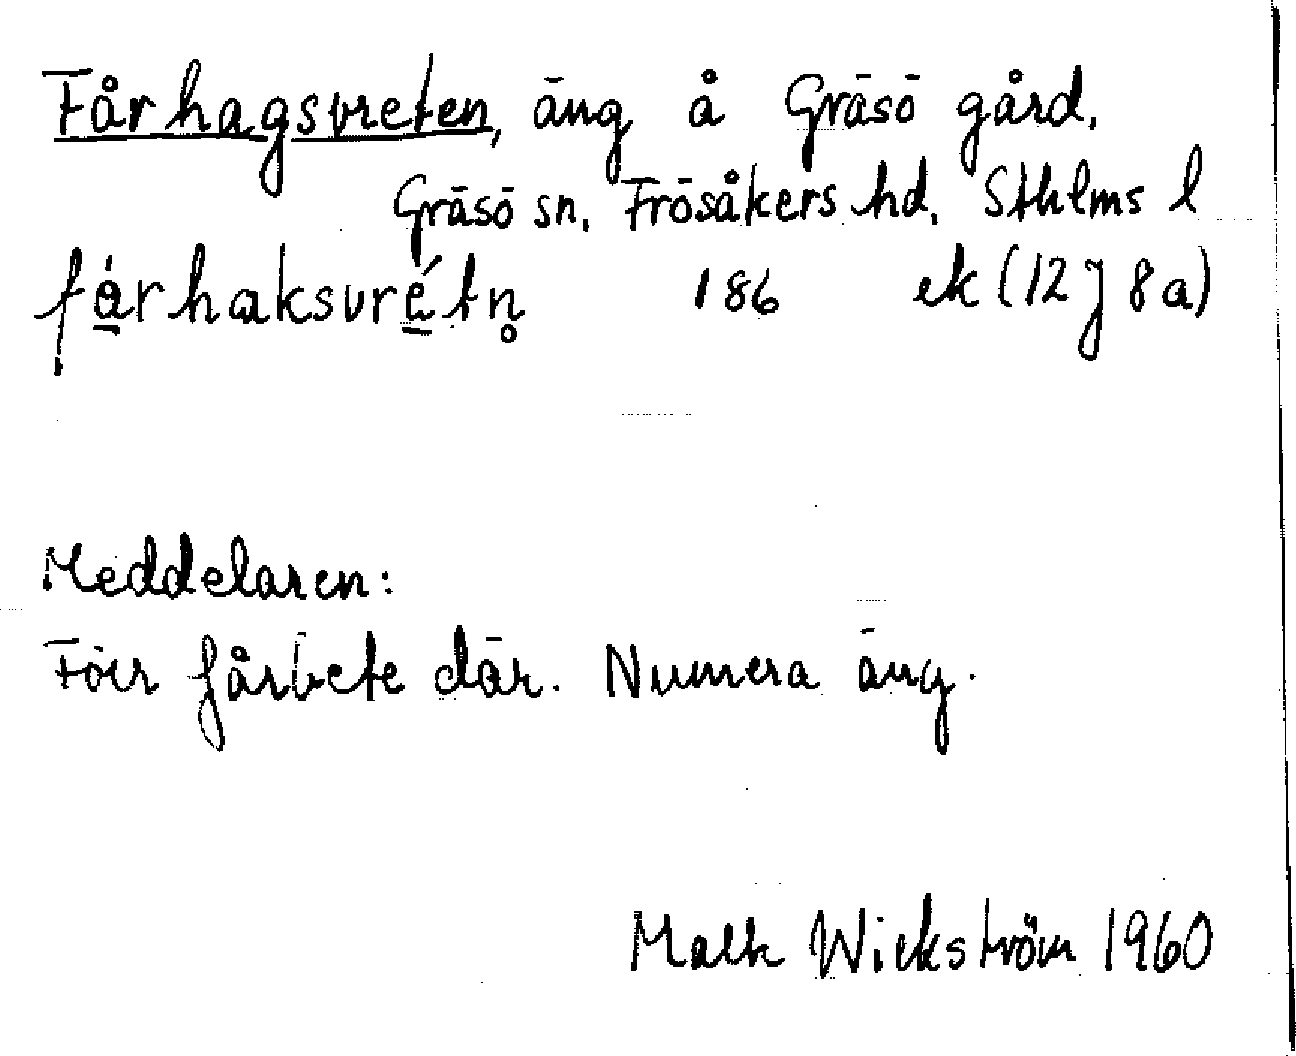 Fårhagsvreten, äng å Gräsö gård,
Gräsö sn, Frösåkers hd, Sthlms l
fårhaksvrétn̥ 186 ek (12J 8a)
Meddelaren:
Förr fårbete där. Numera äng.
Wickström 1960